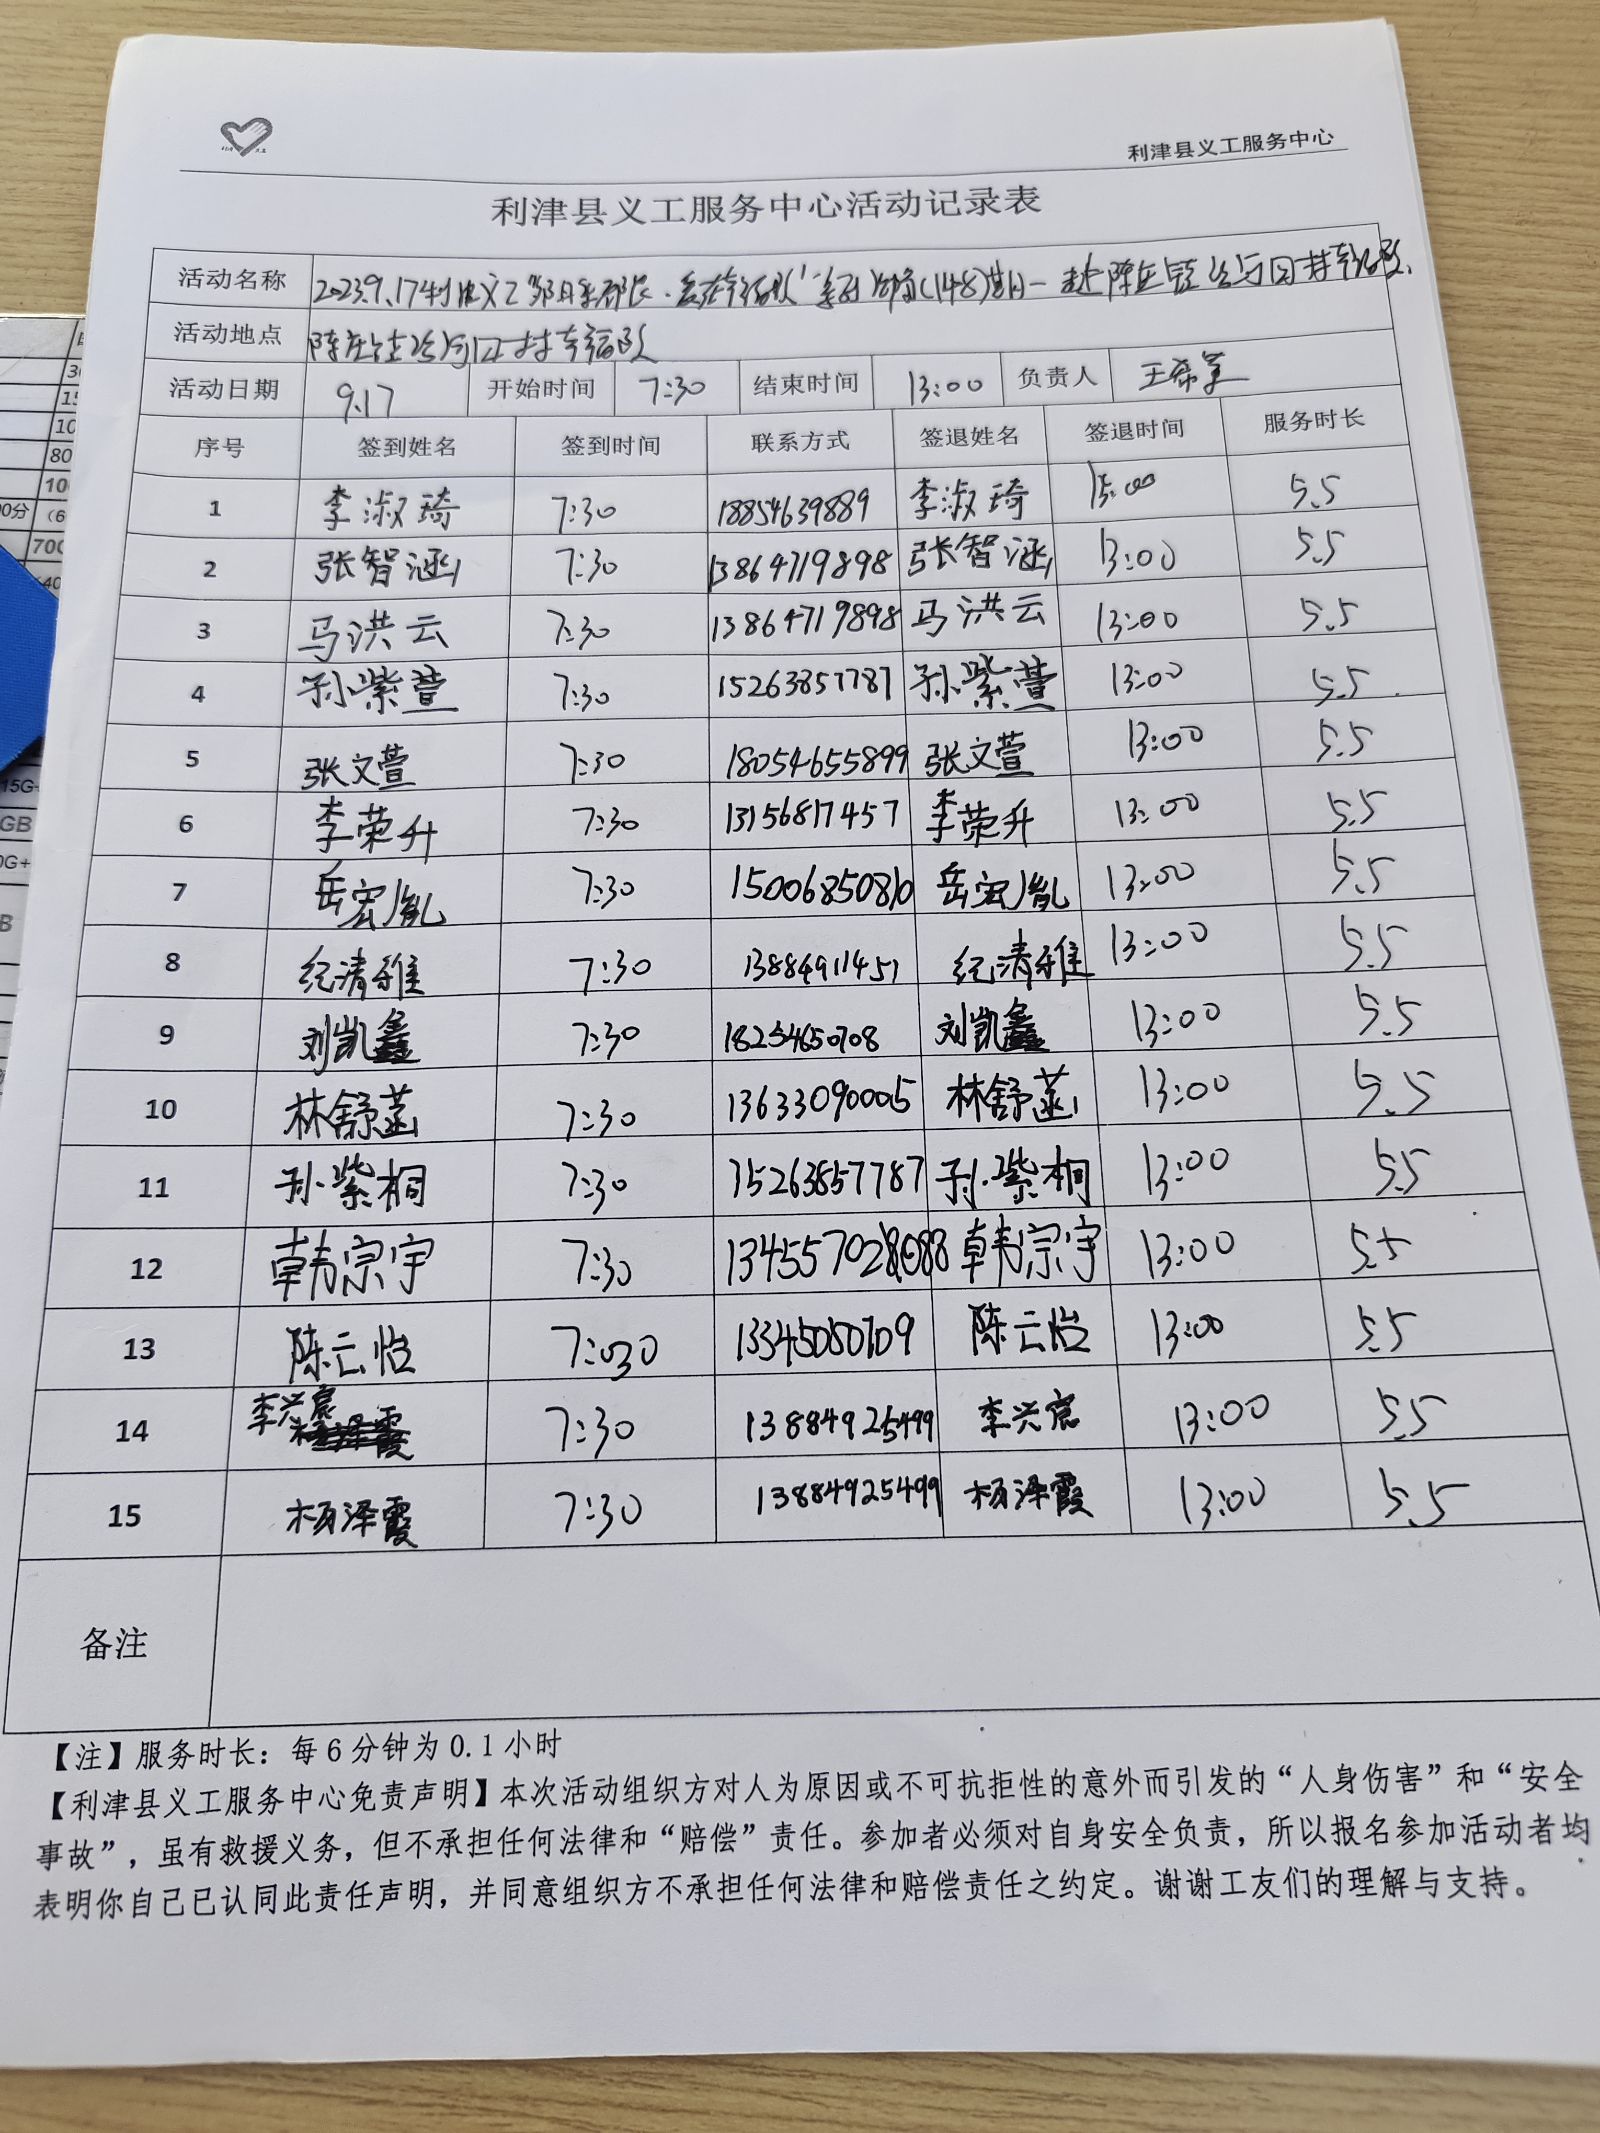 利津县义工服务中心
利津县义工服务中心活动记录表
活动名称 2023.9.17利津义工 (148)期 赴陈庄镇 村幸福院
活动地点 陈庄镇 村幸福院
活动日期 9.17 开始时间 7:30 结束时间 13:00 负责人 王
序号 签到姓名 签到时间 联系方式 签退姓名 签退时间 服务时长
1 李淑琦 7:30 18854639889 李淑琦 13:00 5.5
2 张智涵 7:30 13864719898 张智涵 13:00 5.5
3 马洪云 7:30 13864719898 马洪云 13:00 5.5
4 孙紫萱 7:30 15263857787 孙紫萱 13:00 5.5
5 张文萱 7:30 18054655899 张文萱 13:00 5.5
6 李荣升 7:30 13156817457 李荣升 13:00 5.5
7 岳宏胤 7:30 岳宏胤 13:00 5.5
8 纪清雅 7:30 13884911451 纪清雅 13:00 5.5
9 刘凯鑫 7:30 18254650708 刘凯鑫 13:00 5.5
10 林舒菡 7:30 13633090005 林舒菡 13:00 5.5
11 孙紫桐 7:30 15263857787 孙紫桐 13:00 5.5
12 韩宗宇 7:30 韩宗宇 13:00 5.5
13 陈云怡 7:30 13345050709 陈云怡 13:00 5.5
14 李兴宸 7:30 13884925499 李兴宸 13:00 5.5
15 杨泽霞 7:30 13884925499 杨泽霞 13:00 5.5
备注
【注】服务时长：每6分钟为0.1小时
【利津县义工服务中心免责声明】本次活动组织方对人为原因或不可抗拒性的意外而引发的“人身伤害”和“安全
事故”，虽有救援义务，但不承担任何法律和“赔偿”责任。参加者必须对自身安全负责，所以报名参加活动者均
表明你自己已认同此责任声明，并同意组织方不承担任何法律和赔偿责任之约定。谢谢工友们的理解与支持。